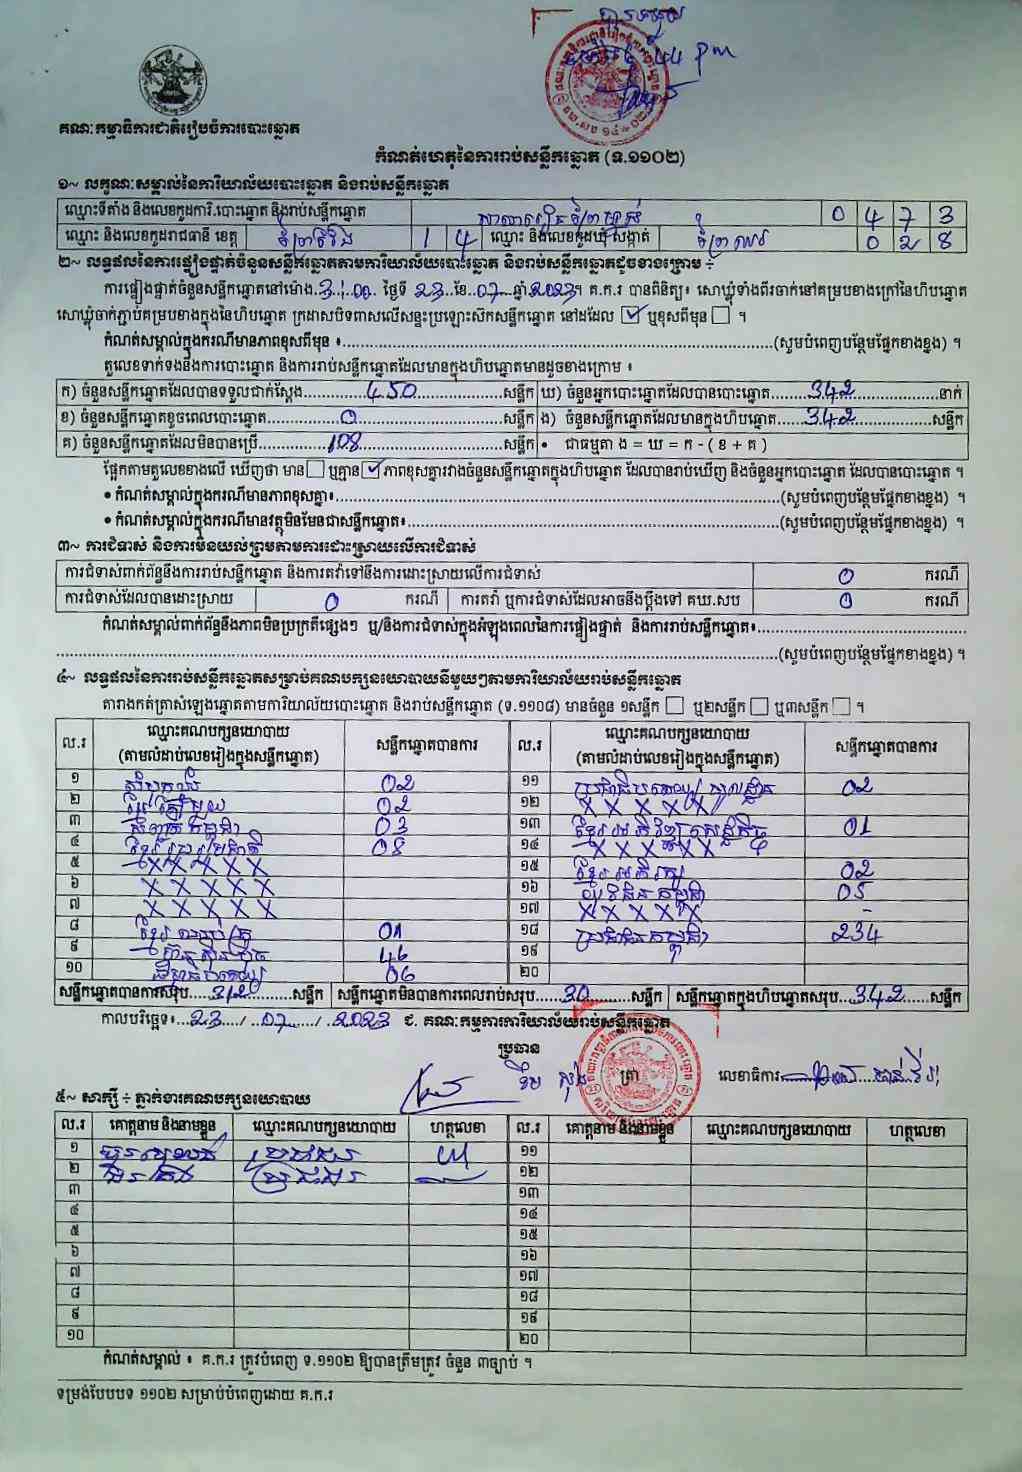 បានទទួល
ម៉ោង ៤:៤៤ pm
គណៈកម្មាធិការជាតិរៀបចំការបោះឆ្នោត
កំណត់ហេតុនៃការរាប់សន្លឹកឆ្នោត (ទ.១១០២)
១~ លក្ខណៈសម្គាល់នៃការិយាល័យបោះឆ្នោត និងរាប់សន្លឹកឆ្នោត
ឈ្មោះទីតាំង និងលេខកូដការិ.បោះឆ្នោត និងរាប់សន្លឹកឆ្នោត សាលារៀន 0 4 7 3
ឈ្មោះ និងលេខកូដរាជធានី ខេត្ត ព្រៃវែង 1 4 ឈ្មោះ និងលេខកូដឃុំ សង្កាត់ 0 2 8
២~ លទ្ធផលនៃការផ្ទៀងផ្ទាត់ចំនួនសន្លឹកឆ្នោតតាមការិយាល័យបោះឆ្នោត និងរាប់សន្លឹកឆ្នោតដូចខាងក្រោម ÷
ការផ្ទៀងផ្ទាត់ចំនួនសន្លឹកឆ្នោតនៅម៉ោង 3:00 ថ្ងៃទី 23 ខែ 07 ឆ្នាំ 2023។ គ.ក.រ បានពិនិត្យ៖ សោឃ្លុំទាំងពីរចាក់នៅគម្របខាងក្រៅនៃហិបឆ្នោត
សោឃ្លុំចាក់ភ្ជាប់គម្របខាងក្នុងនៃហិបឆ្នោត ក្រដាសបិទពាសលើសន្ទះប្រឡោះស៊កសន្លឹកឆ្នោត នៅដដែល ☑ ឬខុសពីមុន ☐ ។
កំណត់សម្គាល់ក្នុងករណីមានភាពខុសពីមុន ៖ (សូមបំពេញបន្ថែមផ្នែកខាងខ្នង) ។
តួលេខទាក់ទងនឹងការបោះឆ្នោត និងការរាប់សន្លឹកឆ្នោតដែលមានក្នុងហិបឆ្នោតមានដូចខាងក្រោម ៖
ក) ចំនួនសន្លឹកឆ្នោតដែលបានទទួលជាក់ស្តែង 450 សន្លឹក ឃ) ចំនួនអ្នកបោះឆ្នោតដែលបានបោះឆ្នោត 342 នាក់
ខ) ចំនួនសន្លឹកឆ្នោតខូចពេលបោះឆ្នោត 0 សន្លឹក ង) ចំនួនសន្លឹកឆ្នោតដែលមានក្នុងហិបឆ្នោត 342 សន្លឹក
គ) ចំនួនសន្លឹកឆ្នោតដែលមិនបានប្រើ 108 សន្លឹក • ជាធម្មតា ង = ឃ = ក - ( ខ + គ )
ផ្អែកតាមតួលេខខាងលើ ឃើញថា មាន ☐ ឬគ្មាន ☑ ភាពខុសគ្នារវាងចំនួនសន្លឹកឆ្នោតក្នុងហិបឆ្នោត ដែលបានរាប់ឃើញ និងចំនួនអ្នកបោះឆ្នោត ដែលបានបោះឆ្នោត ។
• កំណត់សម្គាល់ក្នុងករណីមានភាពខុសគ្នា៖ (សូមបំពេញបន្ថែមផ្នែកខាងខ្នង) ។
• កំណត់សម្គាល់ក្នុងករណីមានវត្ថុមិនមែនជាសន្លឹកឆ្នោត៖ (សូមបំពេញបន្ថែមផ្នែកខាងខ្នង) ។
៣~ ការជំទាស់ និងការមិនយល់ព្រមតាមការដោះស្រាយលើការជំទាស់
ការជំទាស់ពាក់ព័ន្ធនឹងការរាប់សន្លឹកឆ្នោត និងការតវ៉ាទៅនឹងការដោះស្រាយលើការជំទាស់ 0 ករណី
ការជំទាស់ដែលបានដោះស្រាយ 0 ករណី ការតវ៉ា ឬការជំទាស់ដែលអាចនឹងប្តឹងទៅ គឃ.សប 0 ករណី
កំណត់សម្គាល់ពាក់ព័ន្ធនឹងភាពមិនប្រក្រតីផ្សេងៗ ឬ/និងការជំទាស់ក្នុងអំឡុងពេលនៃការផ្ទៀងផ្ទាត់ និងការរាប់សន្លឹកឆ្នោត៖
(សូមបំពេញបន្ថែមផ្នែកខាងខ្នង) ។
៤~ លទ្ធផលនៃការរាប់សន្លឹកឆ្នោតសម្រាប់គណបក្សនយោបាយនីមួយៗតាមការិយាល័យរាប់សន្លឹកឆ្នោត
តារាងកត់ត្រាសំឡេងឆ្នោតតាមការិយាល័យបោះឆ្នោត និងរាប់សន្លឹកឆ្នោត (ទ.១១០៨) មានចំនួន ១សន្លឹក ☐ ឬ២សន្លឹក ☐ ឬ៣សន្លឹក ☐ ។
ល.រ ឈ្មោះគណបក្សនយោបាយ (តាមលំដាប់លេខរៀងក្នុងសន្លឹកឆ្នោត) សន្លឹកឆ្នោតបានការ ល.រ ឈ្មោះគណបក្សនយោបាយ (តាមលំដាប់លេខរៀងក្នុងសន្លឹកឆ្នោត) សន្លឹកឆ្នោតបានការ
១ 02 ១១ 02
២ 02 ១២ X X X X X
៣ 03 ១៣ 01
៤ ខ្មែររួបរួមជាតិ 08 ១៤ X X X X X
៥ X X X X X X ១៥ ខ្មែរអភិរក្ស 02
៦ X X X X X ១៦ យុវជនកម្ពុជា 05
៧ X X X X X ១៧ X X X X X -
៨ 01 ១៨ ប្រជាជនកម្ពុជា 234
៩ ហ៊្វុនស៊ិនប៉ិច 46 ១៩
១០ 06 ២០
សន្លឹកឆ្នោតបានការសរុប 312 សន្លឹក សន្លឹកឆ្នោតមិនបានការពេលរាប់សរុប 30 សន្លឹក សន្លឹកឆ្នោតក្នុងហិបឆ្នោតសរុប 342 សន្លឹក
កាលបរិច្ឆេទ៖ 23 / 07 / 2023 ជ. គណៈកម្មការការិយាល័យរាប់សន្លឹកឆ្នោត
ប្រធាន
ត្រា លេខាធិការ
៥~ សាក្សី ÷ ភ្នាក់ងារគណបក្សនយោបាយ
ល.រ គោត្តនាម និងនាមខ្លួន ឈ្មោះគណបក្សនយោបាយ ហត្ថលេខា ល.រ គោត្តនាម និងនាមខ្លួន ឈ្មោះគណបក្សនយោបាយ ហត្ថលេខា
១ ១១
២ ១២
៣ ១៣
៤ ១៤
៥ ១៥
៦ ១៦
៧ ១៧
៨ ១៨
៩ ១៩
១០ ២០
កំណត់សម្គាល់ ៖ គ.ក.រ ត្រូវបំពេញ ទ.១១០២ ឱ្យបានត្រឹមត្រូវ ចំនួន ៣ច្បាប់ ។
ទម្រង់បែបបទ ១១០២ សម្រាប់បំពេញដោយ គ.ក.រ